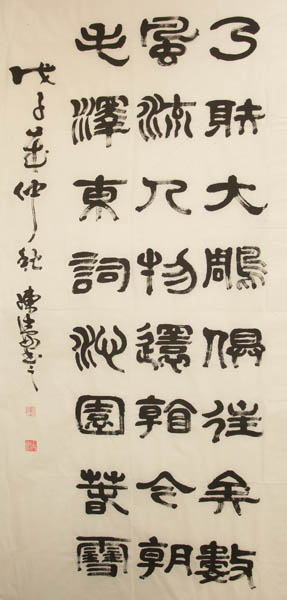 弓射大鵰俱往矣數
風流人物還看今朝
毛澤東詞沁園春雪
戊子歲仲秋陳書